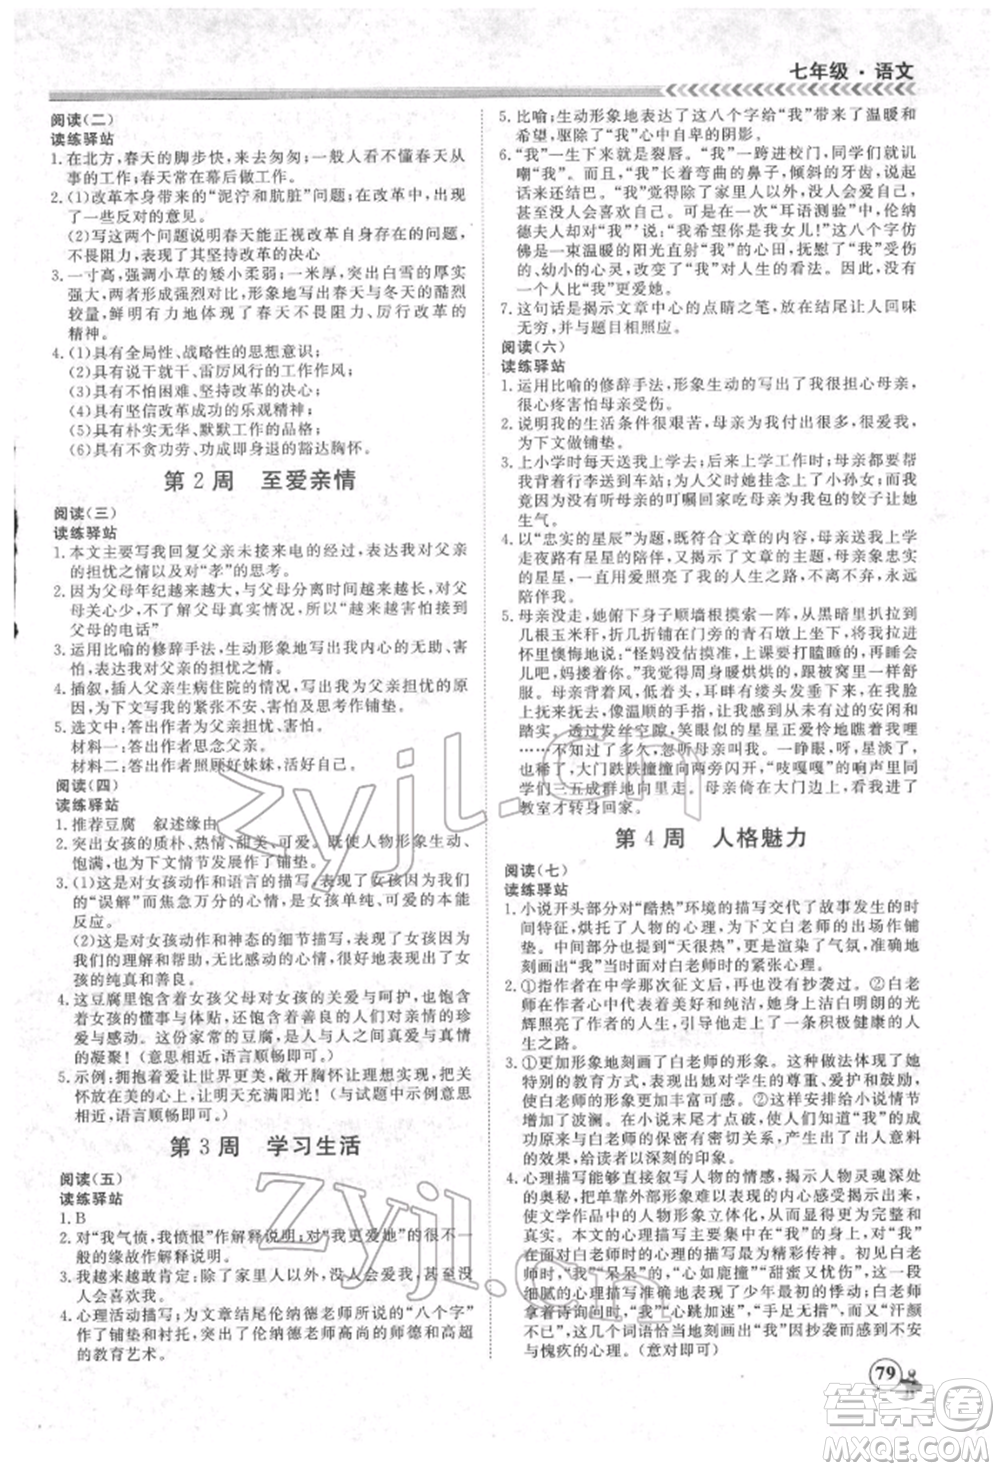 七年级·语文
阅读(二)
读练驿站
1.在北方,春天的脚步快,来去匆匆;看不懂春天将要从
事的工作;春天常在幕后做工作。
2.(1)改革本身带来的“泥泞和肮脏”问题,在改革中出现
了一些反对的意见。
(2)写这两个问题说明春天能正视改革中的问题,并
不畏阻力,表现了其坚持改革的决心。
3.一寸高,强调小草的矮小柔弱;一米厚,突出白雪的厚实
强大,两者形成强烈对比,象征地写出春天与冬天的酷烈
较量,鲜明有力地体现了春天不畏阻力、厉行改革的
精神。
4.(1)具有全局性、战略性的思想意识;
(2)具有说干就干、雷厉风行的工作作风;
(3)具有不怕困难、坚持改革的决心;
(4)具有坚信改革成功的乐观精神;
(5)具有朴实无华、默默工作的品格;
(6)具有不贪功劳、功成即身退的豁达胸怀。
第2周 至爱亲情
阅读(三)
读练驿站
1.本文主要写我回复父亲未接来电的经过,表达我对父亲
的担忧之情以及对“孝”的思考。
2.因为父母年纪越来越大、与父母分离时间越来越长、身
在外地,不了解父母真实情况,所以“越来越害怕接到
父母的电话”
3.运用比喻的修辞手法,生动形象地写出我内心的无助、害
怕,表达我对父亲的担忧之情。
4.插叙,插入父亲生病住院的情况,写出我对父亲担忧的原
因,为下文写我的紧张不安、害怕担忧作铺垫。
5.选文中:答出作者为父亲担忧、害怕。
材料一:答出作者思念父亲。
材料二:答出作者照顾好妹妹,活出责任。
阅读(四)
读练驿站
1.推荐豆腐 叙述缘由
2.突出女孩的质朴、热情、甜美、可爱,既使人物形象生动、
饱满,也为下文情节发展作了铺垫。
3.(1)这是对女孩动作和语言的描写,表现了女孩因“我
们”的“误解”而焦急万分的心情,是女孩单纯、本能的
反应。
(2)这是对女孩动作和神态的细节描写,表现了女孩因为我
们的理解和帮助而充满感激、快乐无比的心情,体现了女
孩的纯真和善良。
4.这豆腐里饱含着女孩父母对女孩的关爱与呵护,也饱含
着女孩的懂事与体贴,体现着人们对亲情的珍
爱与感动。还饱含着善良的人们对女孩的支持与帮
助。这不是普通的豆腐,是人与人之间真爱与真情
的凝聚!(意思相近,语言顺畅即可。)
5.示例:拥抱爱让世界更甜美,敞开胸怀让理想实现,把关
怀放在心上,让明天充满阳光!(与试题中示例意思相
近,语言顺畅即可。)
第3周 学习生活
阅读(五)
读练驿站
1.B
2.对“我气愤,我愤恨”作解释说明;对“我更爱她”的不一
般的缘故作解释说明。
3.我越来越敢肯定:除了家里人以外,我不会爱人,也没有人
会喜欢我。
4.心理活动描写;为文章结尾伦纳德老师说的“八个字”
作了铺垫和衬托,突出了伦纳德老师高尚的师德和高超
的教育艺术。
5.比喻;生动形象地表现了这八个字给“我”带来了温暖和
希望,驱除了“我”心中自卑的阴影。
6.“我”一生下来就是裂唇。“我”一跨进校门,同学们就讥
嘲“我”。“我”长着弯曲的鼻子,倾斜的牙齿,说起
话来还结巴。“我”觉得除了家里人以外,没有人会喜欢,
甚至没有人会喜欢自己。可是一次“耳语测验”中,伦纳
德夫人对“我”说:“我希望你是我女儿!”这八个字仿
佛是一束温暖的阳光直射“我”的心田,抚慰了“我”受伤
的、幼小的心灵,改变了“我”对人生的看法。所以“我”
才会比任何人更爱她。
7.这句话是揭示文章中心的点睛之笔,放在结尾让人回味
无穷,并与题目相照应。
阅读(六)
读练驿站
1.运用比喻的修辞手法,形象生动的写出了我很担心母亲,
很怕母亲受伤。
2.说明我的生活条件很艰苦,突出母亲对我的关爱,也
为下文做铺垫。
3.上小学时每天送我上学;上高一时,母亲背着沉甸甸
的行李送到车站;当了父亲时,她挂念着她的小孙女;
没有听母亲的叮嘱回家吃母亲包的饺子让她
生气。
4.以“忠实的星辰”为题,精确的符合了文章中的内容,母亲
走夜路有星星的陪伴,又点明了文章的主题,母亲是忠实
的星星,一直用爱照亮了我的人生路,不离不弃,永远
陪伴。
5.母亲没走,她俯下身子顺墙根摸索一阵,从黑暗里扒拉出
几根玉米秆,折几折垫在门旁的青石墩上,拉我坐下,心
怀懊悔似的说:“怪妈没估摸准,上课要打瞌睡了,你睡一会
儿吧,妈搂着你。”母亲的周身暖烘烘的,像家里一样舒
服。母亲背着风,耳畔有缕头发被吹起来,在我脸上
和脖子上拂来拂去,像温顺的手指,传递着内心的安详和
踏实。透过发丝空隙,笑眼似的星星正无比爱怜地瞧着我
……不大一会儿,我就睡着了。母亲叫我。一睁眼,校园里
已灯光一片,大门跌跌撞撞的两旁闪开,“吱嘎嘎”的响声里,同
学们三五成群地向里走。母亲一直看着我走进了
教室才转身回家。
第4周 人格魅力
阅读(七)
读练驿站
1.小说开头部分对“酷热”环境的描写交代了故事发生的时
间特征,烘托了人物的心理,为下文白老师的出场作铺
垫。中间部分写“天很热”,更渲染了气氛,准确地
刻画出了“我”当时面对白老师时的紧张心理。
2.①指作者在中学是那次征文后,再没有抄袭过。②白老
师在“我”心中代表着美好和纯洁,她的洁白明朗的光
辉照亮了作者的人生,引导他走上积极健康的人生
之路。
3.①更加形象地刻画了白老师的形象。这种做法体现了她
特别的教育方式,表现出她对学生的尊重、爱护和引
导,使白老师的形象更加丰富而可信。②使小说情节更
加生了波澜。在小说末尾才点破,产生了出人意料的
成功效果与白老师的保密形成对比,突出了“我”的愧疚,
给读者以深刻的印象。
4.心理描写能够直接叙写人物的情感,揭示出人物灵魂深处
的奥秘,把单靠外部形象难以表现的内心感受揭示出来,
使文学作品中的人物形象立体化,从而更加真实,更加深
刻。本文的心理描写主要集中在“我”与白老师的对
话当中,这些对“我”的心理的描写相当精彩传神。见到白老
师时,“我”“呆呆的”,“心如鹿撞”“甜蜜又忧伤”,真实
细腻的心理描写,准确地表现了少年最初的悸动;当白老师
拿着诗询问时,“我”“心跳加速”,“手足无措”“汗颜
不已”,这几个词语恰当地刻画出“我”因抄袭而感到紧张
与愧疚的心理。(意对即可)
79
zyjl.cn
zyjl.cn
答案圈
MXQE.COM